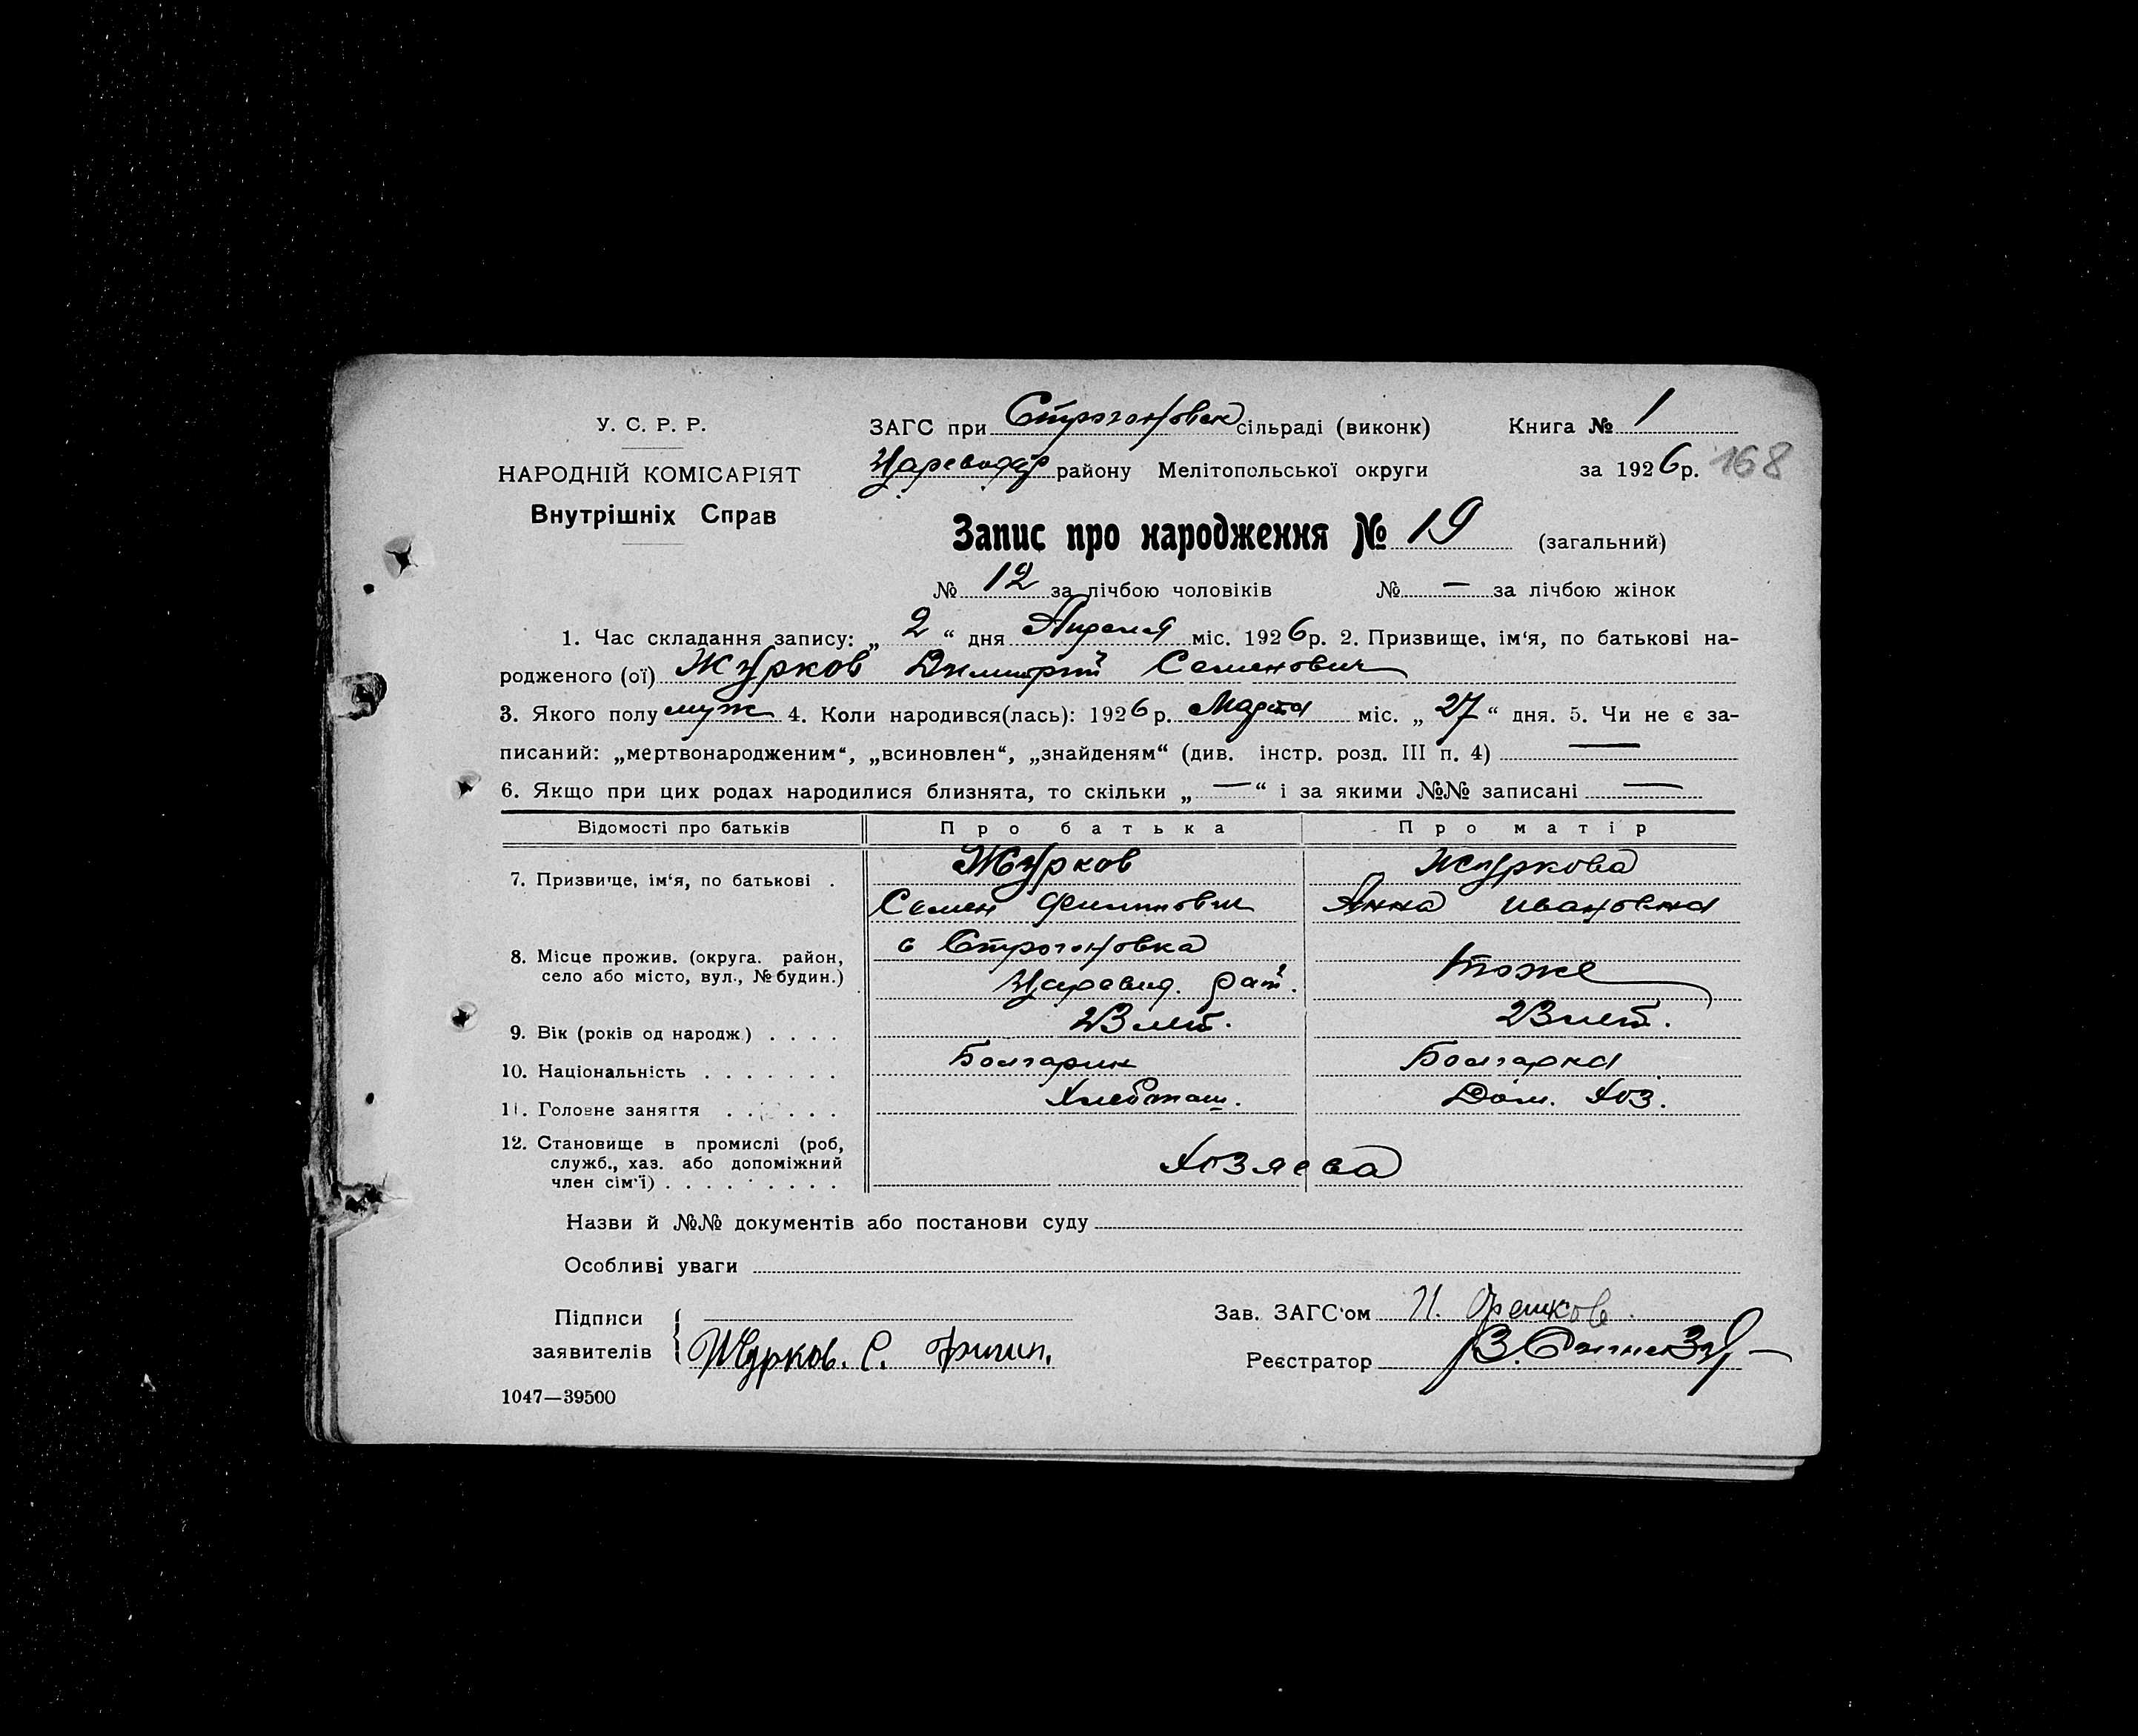 У. С. Р. Р.
НАРОДНІЙ КОМІСАРІЯТ
Внутрішніх Справ
ЗАГС при Строгоновск сільраді (виконк) Книга № 1
району Мелітопольської округи за 1926 р. 168
Запис про народження № 19 (загальний)
№ 12 за лічбою чоловіків № — за лічбою жінок
1. Час складання запису: „ 2 “ дня Апреля міс. 1926 р. 2. Призвище, ім‘я, по батькові на-
родженого (ої) Журков Димитрий Семенович
3. Якого полу муж 4. Коли народився(лась): 1926 р. Марта міс. „ 27 “ дня. 5. Чи не є за-
писаний: „мертвонародженим“, „всиновлен“, „знайденям“ (див. інстр. розд. III п. 4) —
6. Якщо при цих родах народилися близнята, то скільки „ — “ і за якими №№ записані —
Відомості про батьків Про батька Про матір
7. Призвище, ім‘я, по батькові . Журков Журкова
Семен Филипович Анна Ивановна
8. Місце прожив. (округа, район, село або місто, вул., № будин.) с Строгоновка тоже
Царевид. рай.
9. Вік (років од народж.) . . . . 23 лет. 23 лет.
10. Національність . . . . . . . Болгарин Болгарка
11. Головне заняття . . . . . . Хлебопаш. Дом. Хоз.
12. Становище в промислі (роб, служб., хаз. або допоміжний член сім‘ї) . . . . . . . . . Хозяева
Назви й №№ документів або постанови суду
Особливі уваги
Підписи заявителів Журков. С. Филип.
Зав. ЗАГС‘ом
Реєстратор
1047—39500